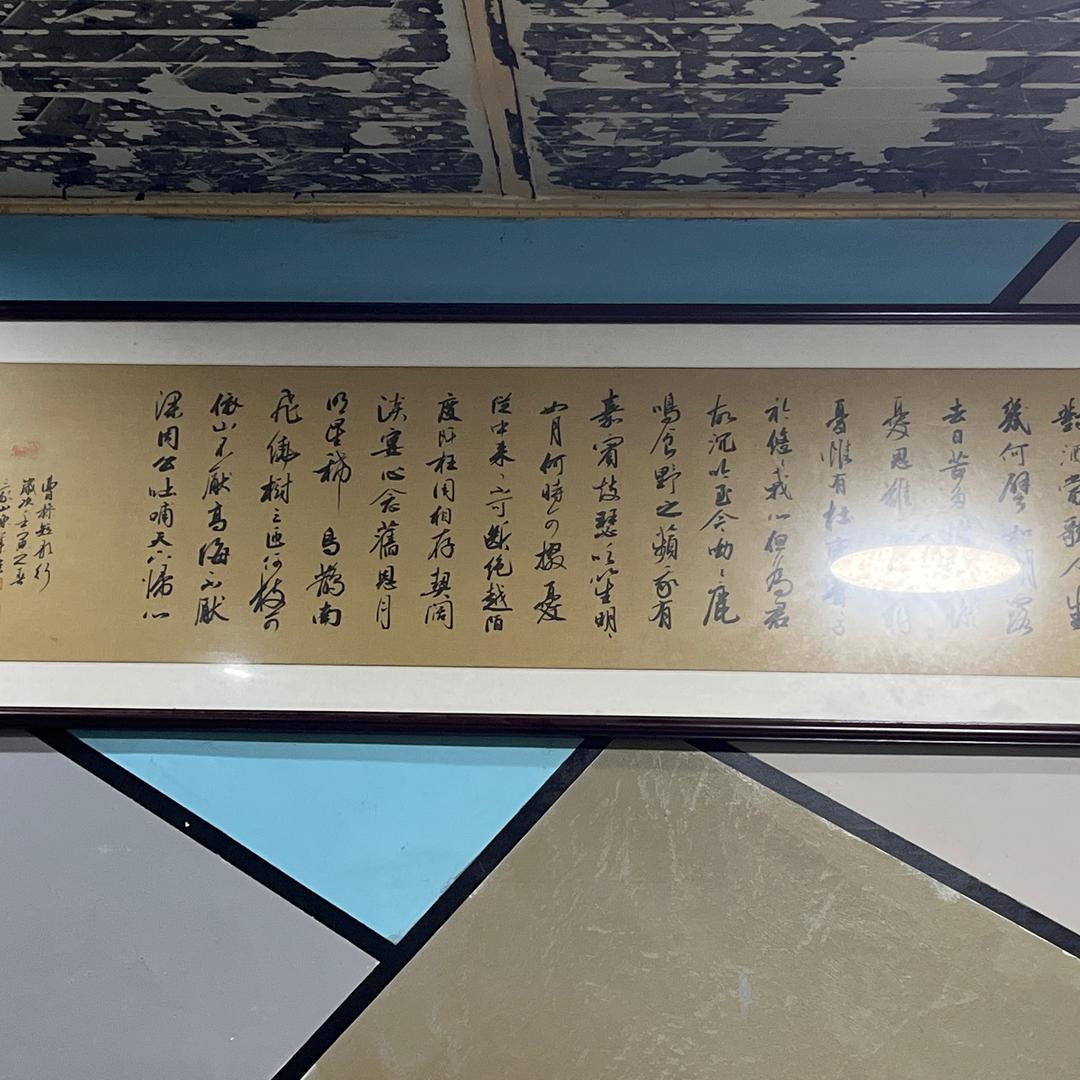 對酒當歌人生
幾何譬如朝露
去日苦多慷
憂思難
憂惟有杜康青子
於悠〻我心但為君
故沉吟至今呦〻鹿
鳴食野之蘋我有
嘉賓鼓瑟吹笙明〻
如月何時可掇憂
從中來不可斷絕越陌
度阡枉用相存契闊
淡宴心念舊恩月
明星稀烏鵲南
飛繞樹三匝何枝可
依山不厭高海不厭
深周公吐哺天下歸心
曹操短歌行
歲次壬寅之春